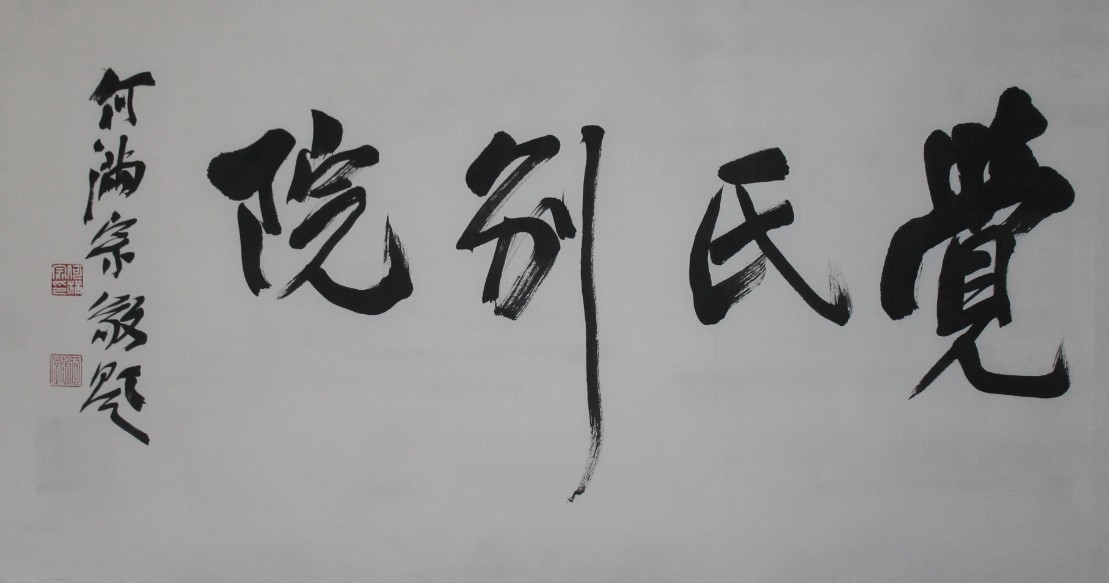 覺氏別院
何滿宗敬題